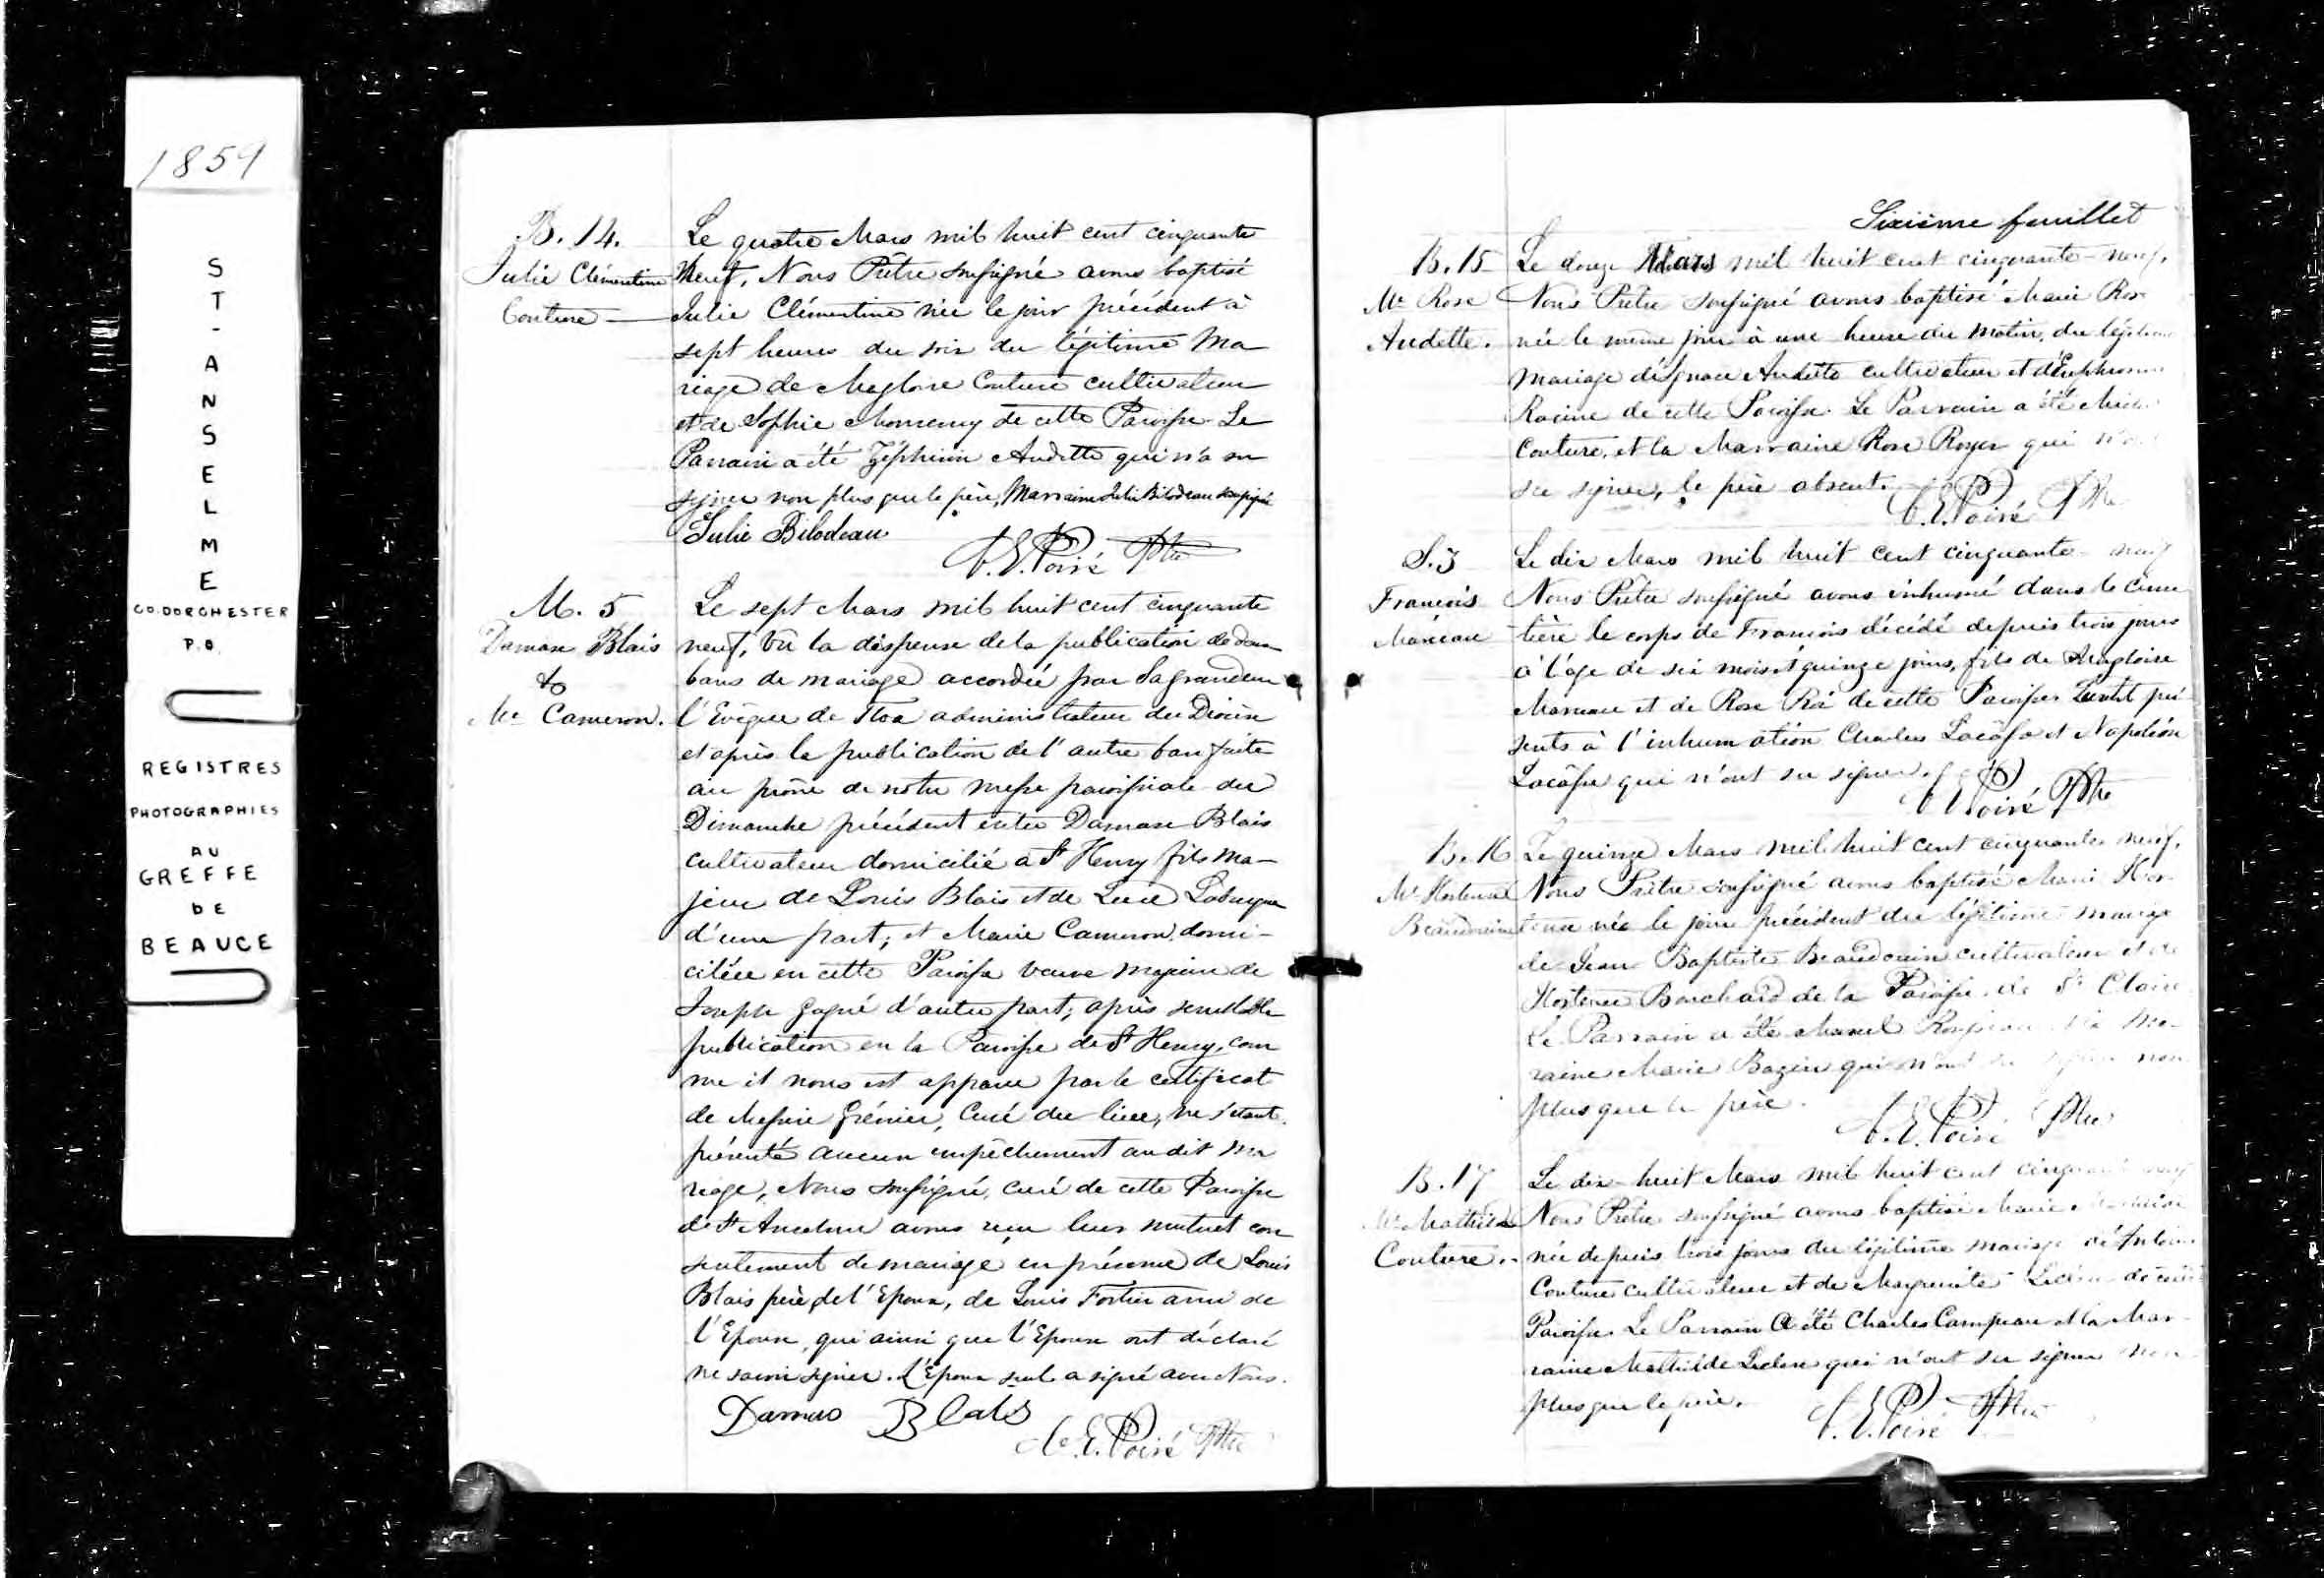 1859
ST-ANSELME
CO. DORCHESTER
P.Q.
REGISTRES
PHOTOGRAPHIES
AU
GREFFE
DE
BEAUCE
B. 14.
Julie Clémentine
Couture
Le quatre Mars mil huit cent cinquante
Neuf, Nous Prêtre soussigné avons baptisé
Julie Clémentine née le jour précédent à
sept heures du soir du légitime Ma
riage de Magloire Couture cultivateur
et de Sophie Morency de cette Paroisse Le
Parrain a été Zéphirin Audette qui n'a su
signer non plus que le père, Marraine Julie Bilodeau soussignée
Julie Bilodeau
C. E. Poiré Ptre
M. 5
Damase Blais
&
Me Cameron.
Le sept Mars mil huit cent cinquante
neuf, Vu la dispense de la publication de deux
bans de mariage accordée par Sa grandeur
l'Evêque de Tloa administrateur du Diocèse
et après la publication de l'autre ban faite
au prône de notre messe paroissiale du
Dimanche précédent entre Damase Blais
cultivateur domicilié à St Henry fils Ma-
jeur de Louis Blais et de Luce
d'une part; et Marie Cameron, domi-
ciliée en cette Paroisse veuve majeure de
Joseph Gagné d'autre part; après semblable
publication en la Paroisse de St Henry, com
me il nous est apparu par le certificat
de Messire Grénier, Curé du lieu, ne s'étant
présenté aucun empêchement au dit Ma
riage, Nous soussigné, curé de cette Paroisse
de St Anselme avons reçu leur mutuel con
sentement de mariage en présence de Louis
Blais père de l'Epoux, de Louis Fortier ami de
l'Epoux, qui ainsi que l'Epouse ont déclaré
ne savoir signer. L'Epoux seul a signé avec Nous.
Damas Blais
C. E. Poiré Ptre
Sixième feuillet
B. 15
Me Rose
Audette.
Le douze Mars mil huit cent cinquante-neuf,
Nous Prêtre soussigné avons baptisé Marie Rose
née le même jour à une heure du matin, du légitime
Mariage d'Ignace Audette cultivateur et d'Euphrosine
Racine de cette Paroisse. Le Parrain a été
Couture, et la Marraine Rose Royer qui n'ont
su signer, le père absent.
C. E. Poiré Ptre
S. 3
François
Marceau
Le dix Mars mil huit cent cinquante-neuf
Nous Prêtre soussigné avons inhumé dans le cime
tière le corps de François décédé depuis trois jours
à l'âge de six mois et quinze jours, fils de Magloire
Marceau et de Rose Roi de cette Paroisse pré-
sents à l'inhumation Charles Lacâsse et Napoléon
Lacâsse qui n'ont su signer.
C. E. Poiré Ptre
B. 16
Me Hortense
Beaudouin
Le quinze Mars mil huit cent cinquante neuf,
Nous Prêtre soussigné avons baptisé Marie Hor-
tense née le jour précédent du légitime mariage
de Jean Baptiste Beaudouin cultivateur et de
Hortense Bouchard de la Paroisse de St Claire
Le Parrain a été Manuel et la Ma-
raine Marie Bazin qui n'ont su signer non
plus que le père.
C. E. Poiré Ptre
B. 17
Me Mathilde
Couture.
Le dix-huit Mars mil huit cent cinquante neuf
Nous Prêtre soussigné avons baptisé Marie
née depuis trois jours du légitime mariage d'Antoine
Couture cultivateur et de Marguerite de cette
Paroisse. Le Parrain a été Charles Campeau et la Mar-
raine Mathilde Leclerc qui n'ont su signer non
plus que le père.
C. E. Poiré Ptre